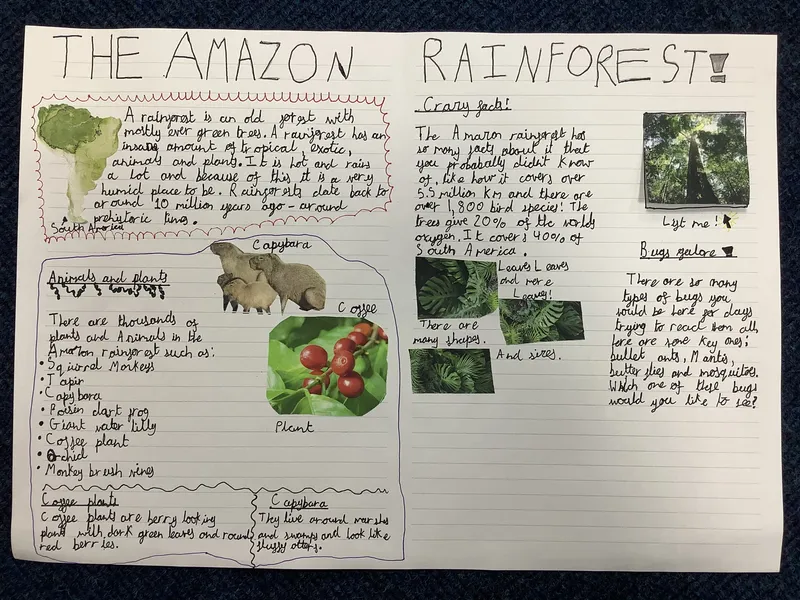 THE AMAZON RAINFOREST!
A rainforest is an old forest with
mostly ever green trees. A rainforest has an
insane amount of tropical, exotic,
animals and plants. It is hot and rains
a lot and because of this it is a very
humid place to be. Rainforests date back to
around 10 million years ago - around
prehistoric times.
South America
Animals and plants
Capybara
Coffee
Plant
There are thousands of
plants and Animals in the
Amazon rainforest such as:
• Squirrel Monkeys
• Tapir
• Capybara
• Poison dart frog
• Giant water lilly
• Coffee plant
• Orchid
• Monkey brush vines
Coffee plants
Coffee plants are berry looking
plant with dark green leaves and round
red berries.
Capybara
They live around marshes
and swamps and look like
fluffy otters.
Crazy facts!
The Amazon rainforest has
so many facts about it that
you probabally didn't know
of, like how it covers over
5.5 million km and there are
over 1,800 bird species! The
trees give 20% of the worlds
oxygen. It covers 40% of
South America.
Leaves Leaves
and more
Leaves!
There are
many shapes.
And sizes.
Lift me!
Bugs galore
There are so many
types of bugs you
would be here for days
trying to react them all
here are some key ones;
bullet ants, Mantis,
butterflies and mosquitoes.
Which one of these bugs
would you like to see?